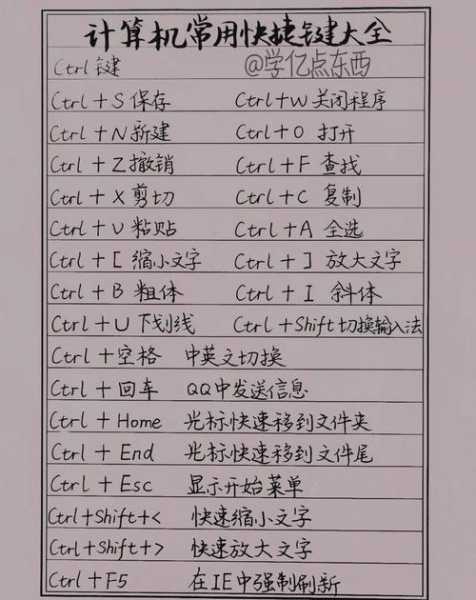 计算机常用快捷键大全
Ctrl 键 @学亿点东西
Ctrl+S 保存 Ctrl+W 关闭程序
Ctrl+N 新建 Ctrl+O 打开
Ctrl+Z 撤销 Ctrl+F 查找
Ctrl+X 剪切 Ctrl+C 复制
Ctrl+V 粘贴 Ctrl+A 全选
Ctrl+[ 缩小文字 Ctrl+] 放大文字
Ctrl+B 粗体 Ctrl+I 斜体
Ctrl+U 下划线 Ctrl+Shift 切换输入法
Ctrl+空格 中英文切换
Ctrl+回车 QQ中发送信息
Ctrl+Home 光标快速移到文件夹
Ctrl+End 光标快速移到文件尾
Ctrl+Esc 显示开始菜单
Ctrl+Shift+< 快速缩小文字
Ctrl+Shift+> 快速放大文字
Ctrl+F5 在IE中强制刷新